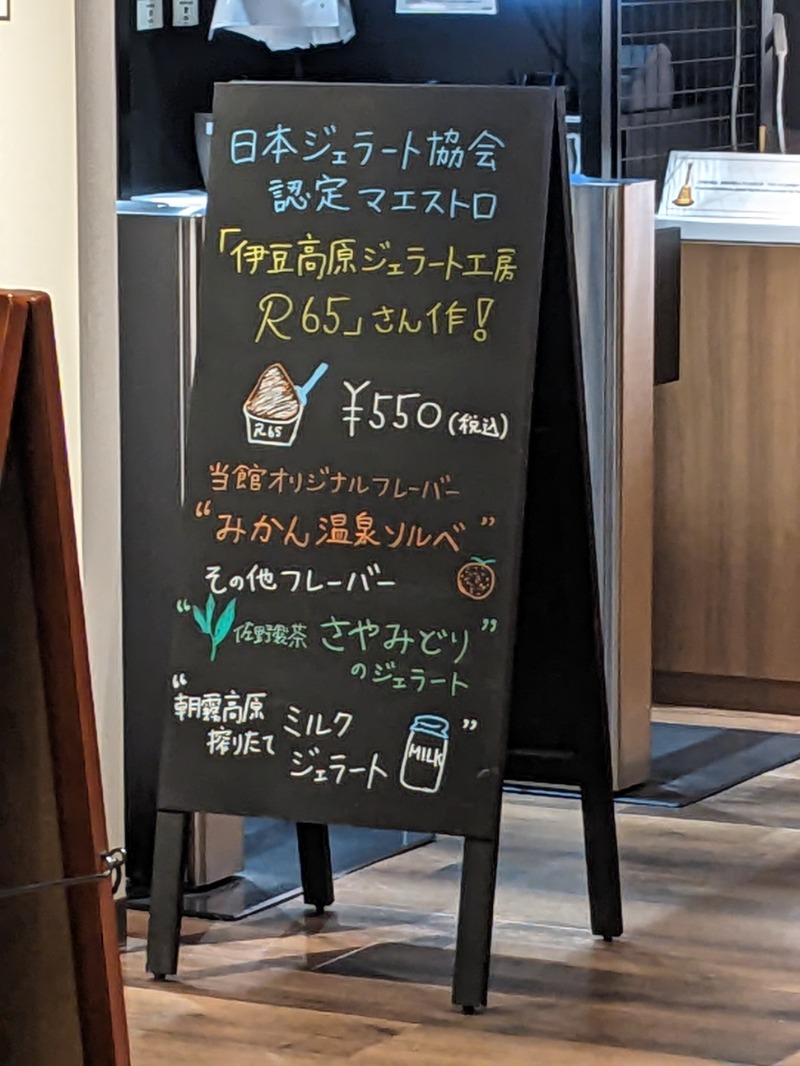 日本ジェラート協会
認定マエストロ
「伊豆高原ジェラート工房
R65」さん作!
R65
¥550(税込)
当館オリジナルフレーバー
"みかん温泉ソルベ"
その他フレーバー
"佐野製茶 さやみどり"
のジェラート
"朝霧高原
搾りたて ミルク
ジェラート"
MILK